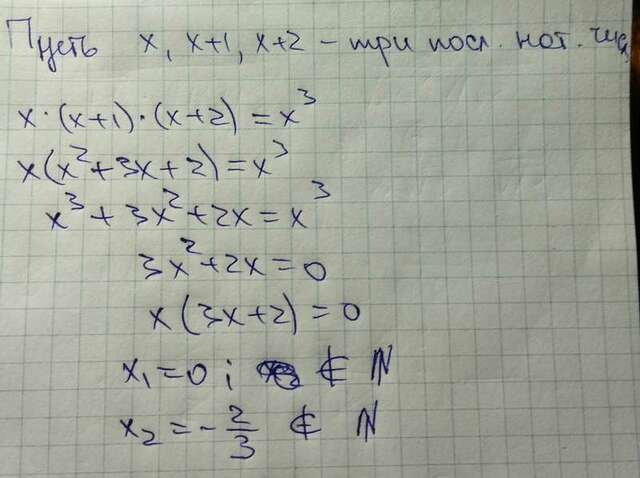 Пусть x, x+1, x+2 – три посл. нат.
x·(x+1)·(x+2) = x³
x(x²+3x+2) = x³
x³+3x²+2x = x³
3x²+2x=0
x(3x+2)=0
x₁=0; ∉ ℕ
x₂=-2/3 ∉ ℕ